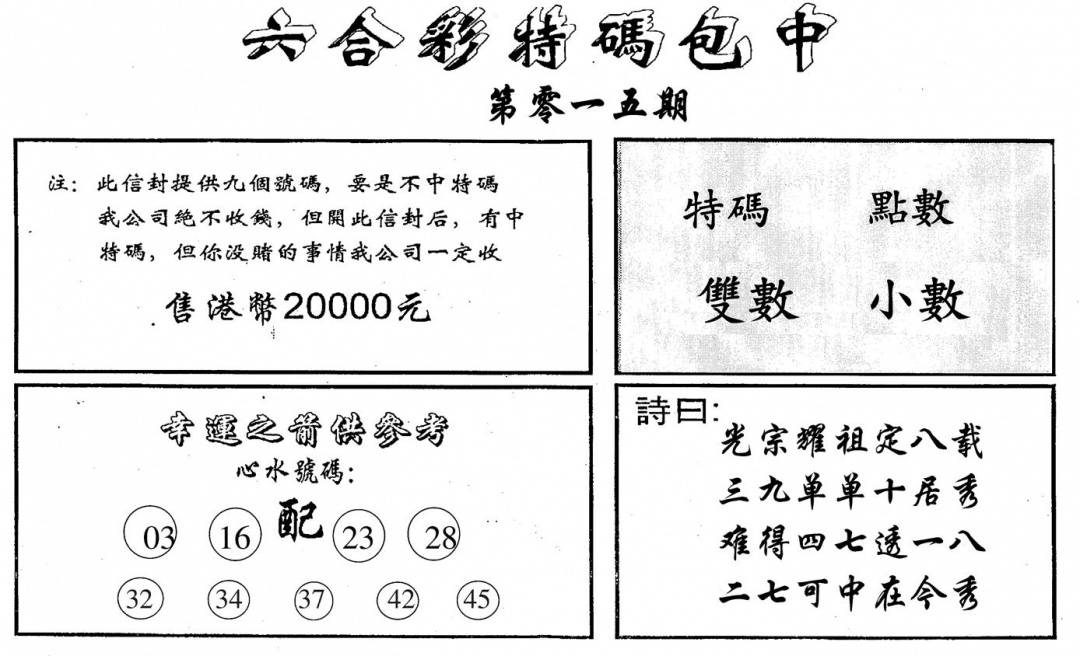 六合彩特碼包中
第零一五期
注：此信封提供九個號碼，要是不中特碼
我公司絕不收錢，但開此信封后，有中
特碼，但你没賭的事情我公司一定收
售港幣20000元
特碼 點數
雙數 小數
幸運之箭供參考
心水號碼：
03 16 配 23 28
32 34 37 42 45
詩曰：
光宗耀祖定八载
三九单单十居秀
难得四七透一八
二七可中在今秀